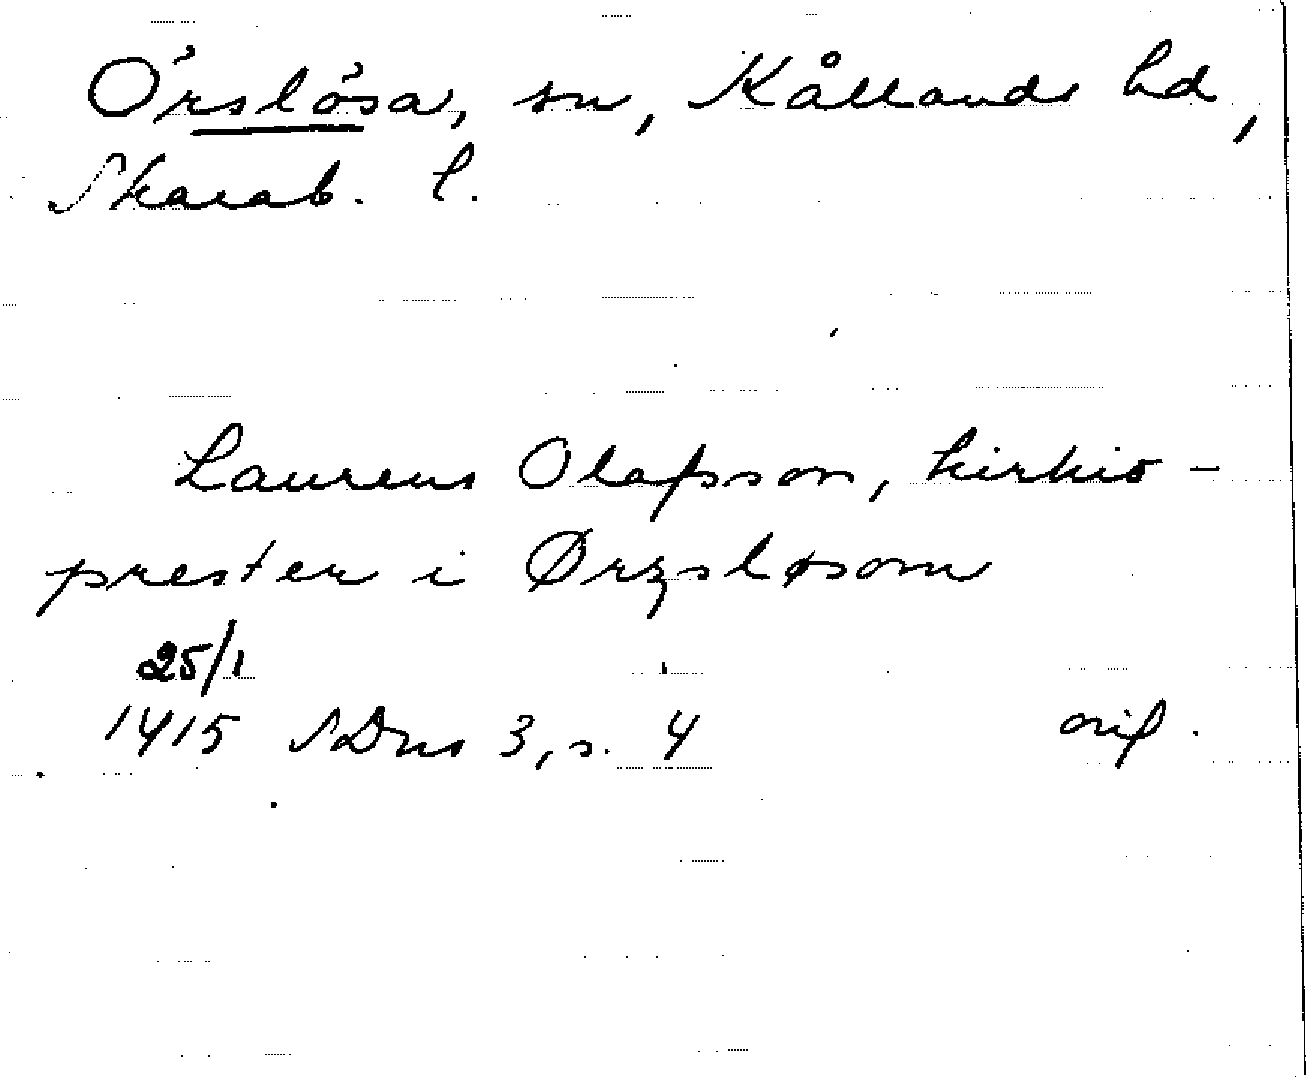 Örslösa, sn, Kållands hd,
Skarab. l.
Laurens Olafsson, kirkio-
prester i Ørzsløsom
25/1
1415 SDns 3, s. 4 orig.